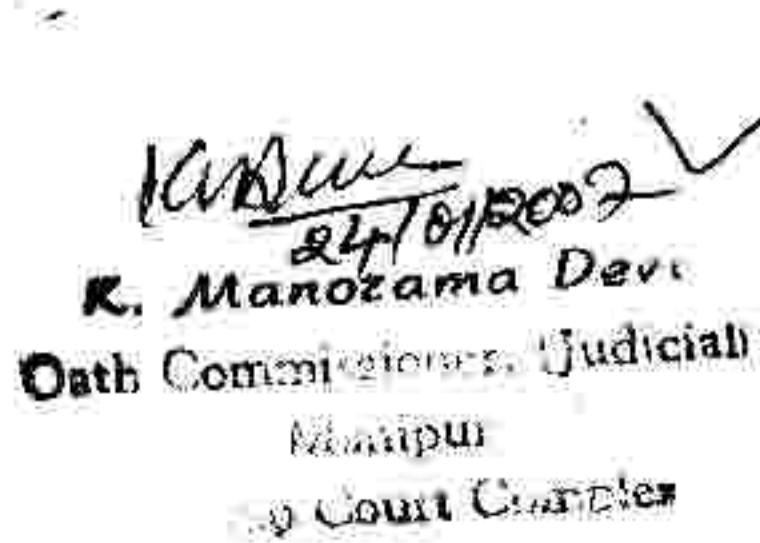 24/01/2007
K. Manorama Devi
Oath Commissioner, (Judicial)
Manipur
Court Complex